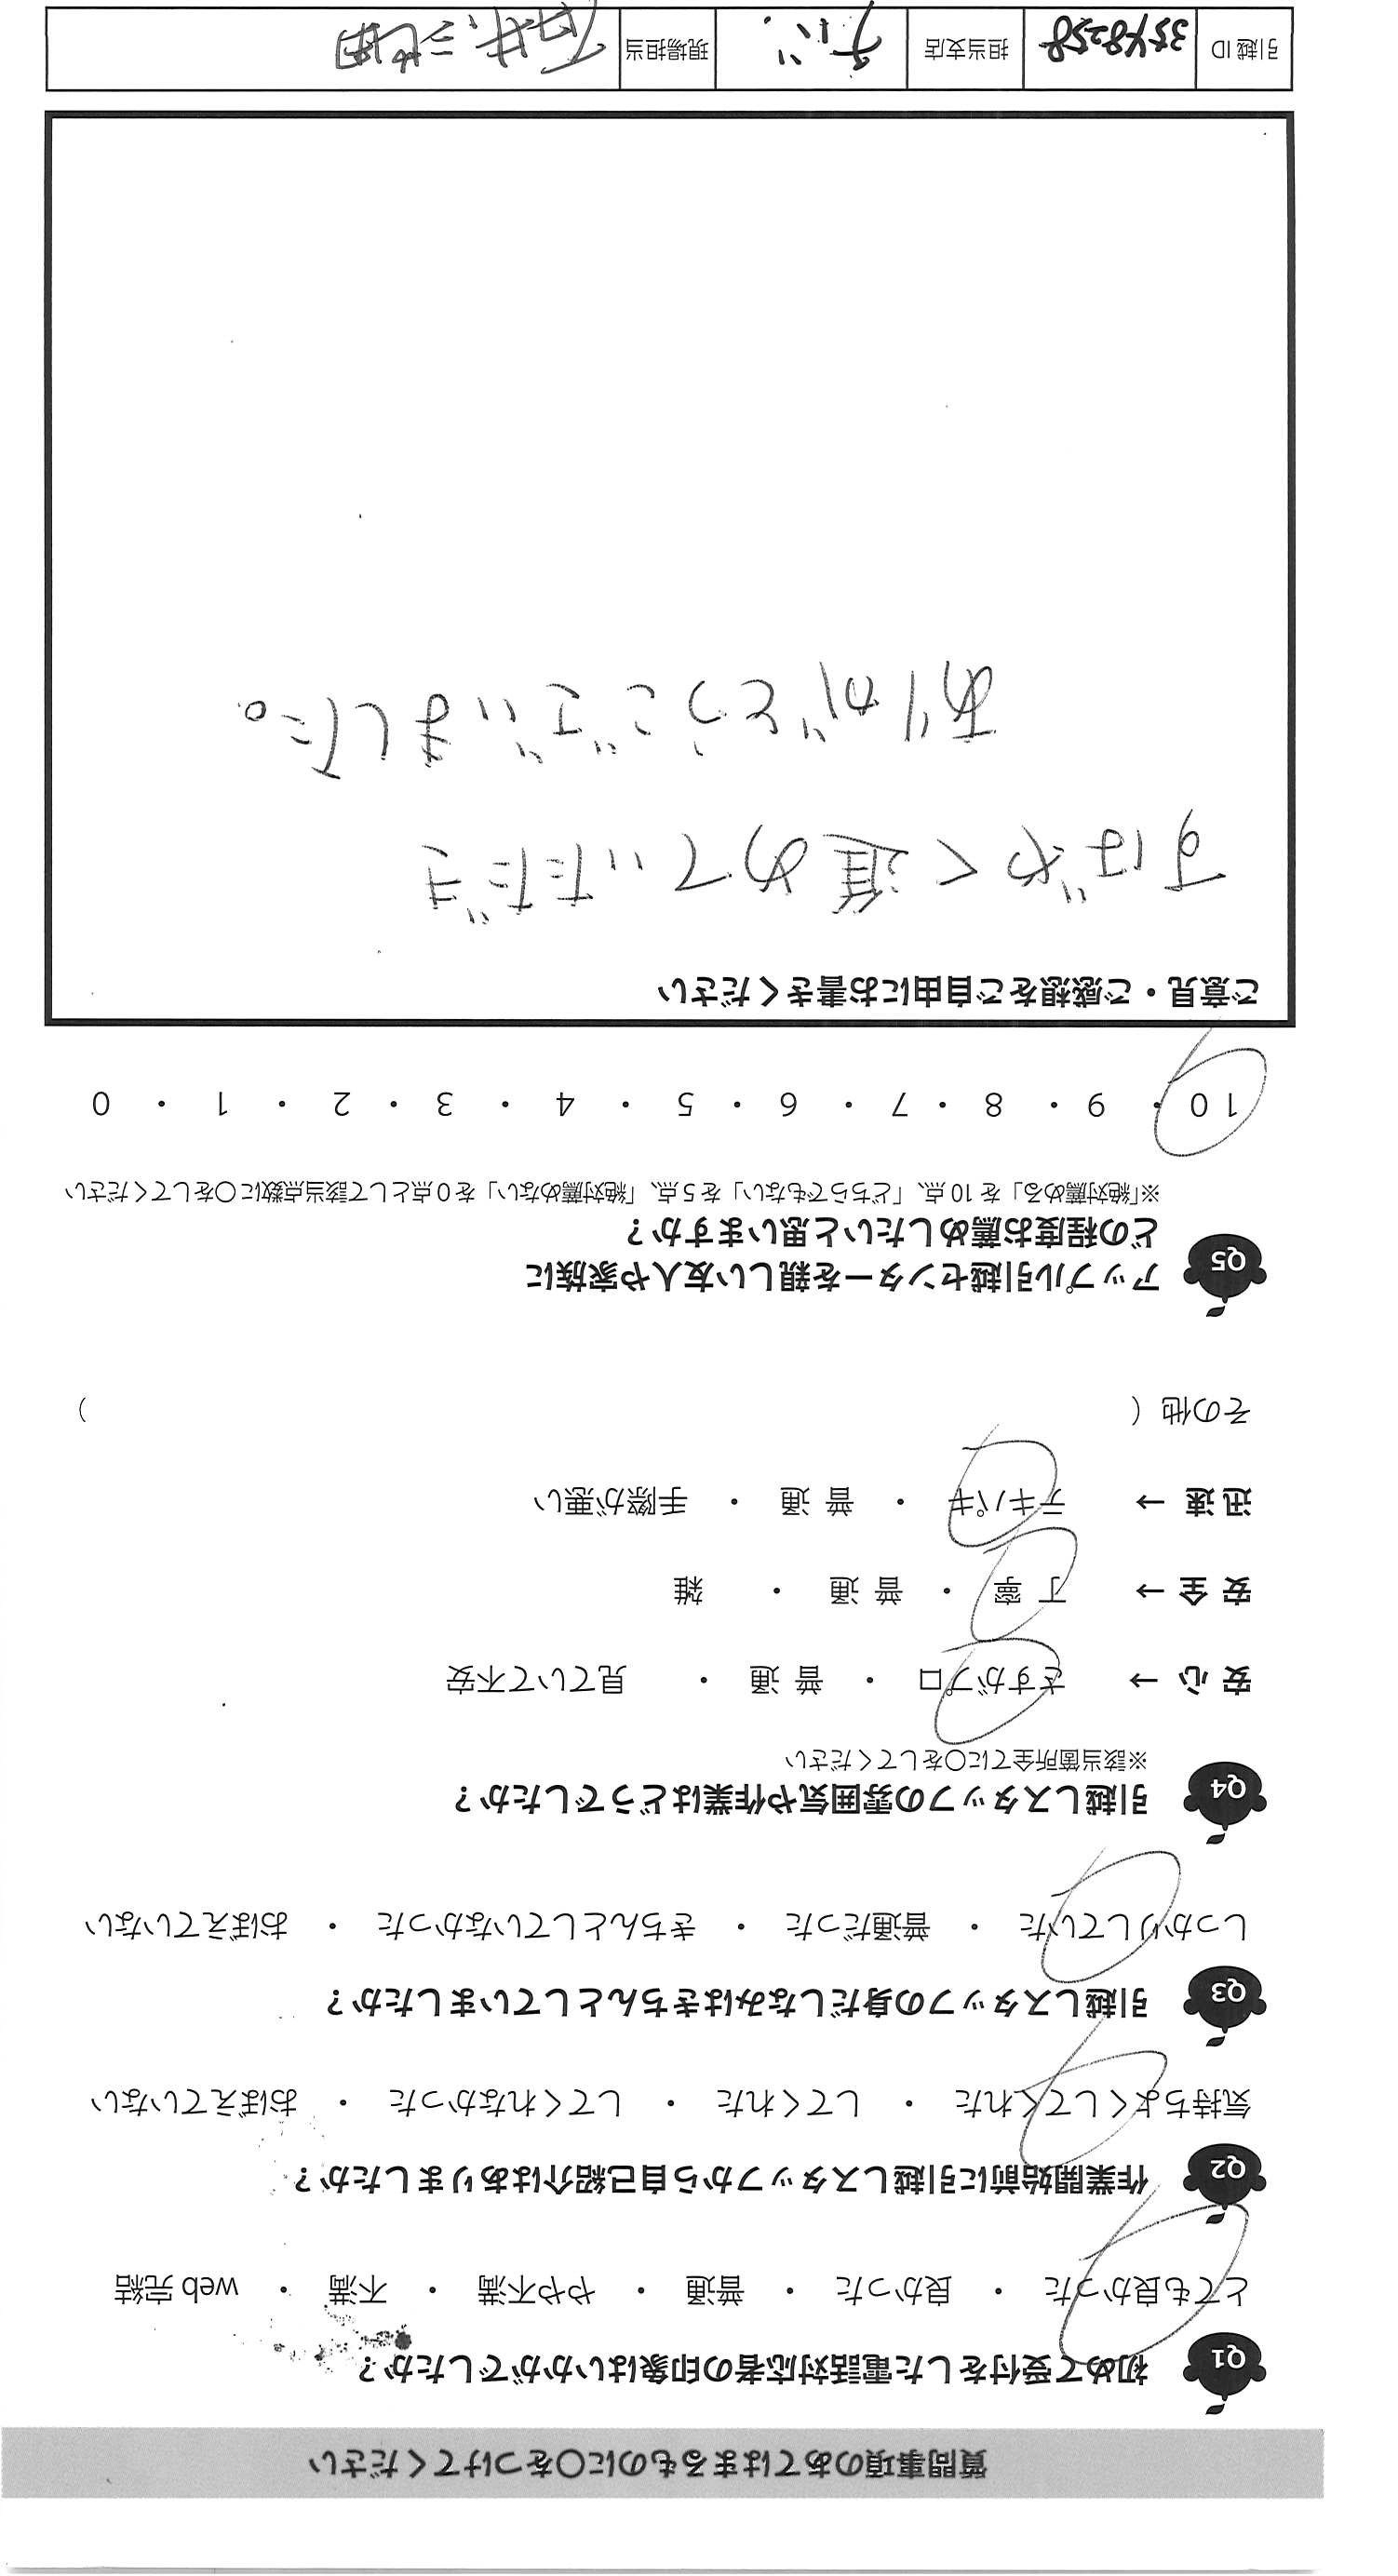 質問事項のあてはまるものに○をつけてください
Q1 初めて受付をした電話対応者の印象はいかがでしたか？
とても良かった ・ 良かった ・ 普通 ・ やや不満 ・ 不満 ・ web 完結
Q2 作業開始前に引越しスタッフから自己紹介はありましたか？
気持ちよくしてくれた ・ してくれた ・ してくれなかった ・ おぼえていない
Q3 引越しスタッフの身だしなみはきちんとしていましたか？
しっかりしていた ・ 普通だった ・ きちんとしていなかった ・ おぼえていない
Q4 引越しスタッフの雰囲気や作業はどうでしたか？
※該当箇所全てに○をしてください
安 心 → さすがプロ ・ 普 通 ・ 見ていて不安
安 全 → 丁 寧 ・ 普 通 ・ 雑
迅 速 → テキパキ ・ 普 通 ・ 手際が悪い
その他（ ）
Q5 アップル引越センターを親しい友人や家族に
どの程度お薦めしたいと思いますか？
※「絶対薦める」を 10 点、「どちらでもない」を 5 点、「絶対薦めない」を 0 点として該当点数に○をしてください
10 ・ 9 ・ 8 ・ 7 ・ 6 ・ 5 ・ 4 ・ 3 ・ 2 ・ 1 ・ 0
ご意見・ご感想をご自由にお書きください
すばやく進めていただき
ありがとうございました。
引越 ID 3548258 担当支店 チバ 現場担当